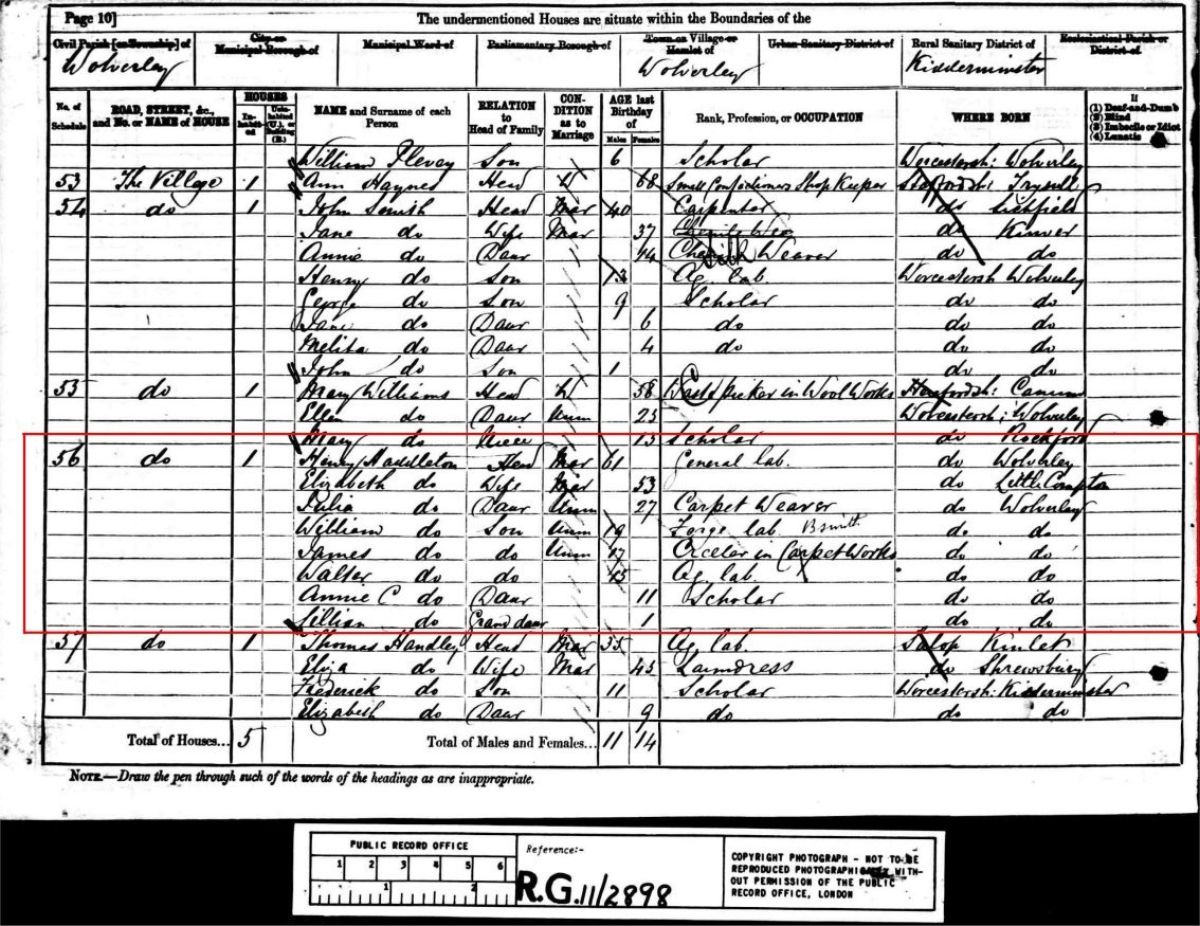 Page 10] The undermentioned Houses are situate within the Boundaries of the
Civil Parish [or Township] of City or Municipal Borough of Municipal Ward of Parliamentary Borough of Town or Village or Hamlet of Urban Sanitary District of Rural Sanitary District of Ecclesiastical Parish or District of
Wolverley Wolverley Kidderminster
No. of Schedule ROAD, STREET, &c., and No. or NAME of HOUSE HOUSES In-habit-ed Unin-habited (U.), or Building (B.) NAME and Surname of each Person RELATION to Head of Family CON-DITION as to Marriage AGE last Birthday of Males Females Rank, Profession, or OCCUPATION WHERE BORN If (1) Deaf-and-Dumb (2) Blind (3) Imbecile or Idiot (4) Lunatic
William Plevey Son 6 Scholar Worcestersh: Wolverley
53 The Village 1 Ann Haynes Head W 68 Small Confectioners Shop Keeper Staffordsh: Trysull
54 do 1 John Smith Head Mar 40 Carpenter do Lichfield
Jane do Wife Mar 37 do Kinver
Annie do Daur 14 Weaver do do
Henry do Son 13 Ag. lab. Worcestersh Wolverley
George do Son 9 Scholar do do
Jane do Daur 6 do do do
Melita do Daur 4 do do do
John do Son 1 do do
55 do 1 Mary Williams Head W 58 picker in Wool Works Herefordsh:
Ellen do Daur Unm 23 Worcestersh: Wolverley
Mary do Niece 13 Scholar do Rockford
56 do 1 Henry Haddleton Head Mar 61 General lab. do Wolverley
Elizabeth do Wife Mar 53 do Little Compton
Julia do Daur Unm 27 Carpet Weaver do Wolverley
William do Son Unm 19 Forge lab. Bsmith do do
James do do Unm 17 in Carpet Works do do
Walter do do 15 Ag. lab. do do
Annie C do Daur 11 Scholar do do
Lillian do Grand daur 1 do do
57 do 1 Thomas Handley Head Mar 55 Ag. lab. Salop Kinlet
Eliza do Wife Mar 45 Laundress do Shrewsbury
Frederick do Son 11 Scholar Worcestersh: Kidderminster
Elizabeth do Daur 9 do do do
Total of Houses... 5 Total of Males and Females... 11 14
NOTE.—Draw the pen through such of the words of the headings as are inappropriate.
PUBLIC RECORD OFFICE
1 2 3 4 5 6
1 2
Reference:-
R.G. 11/2898
COPYRIGHT PHOTOGRAPH - NOT TO BE
REPRODUCED PHOTOGRAPHICALLY WITH-
OUT PERMISSION OF THE PUBLIC
RECORD OFFICE, LONDON